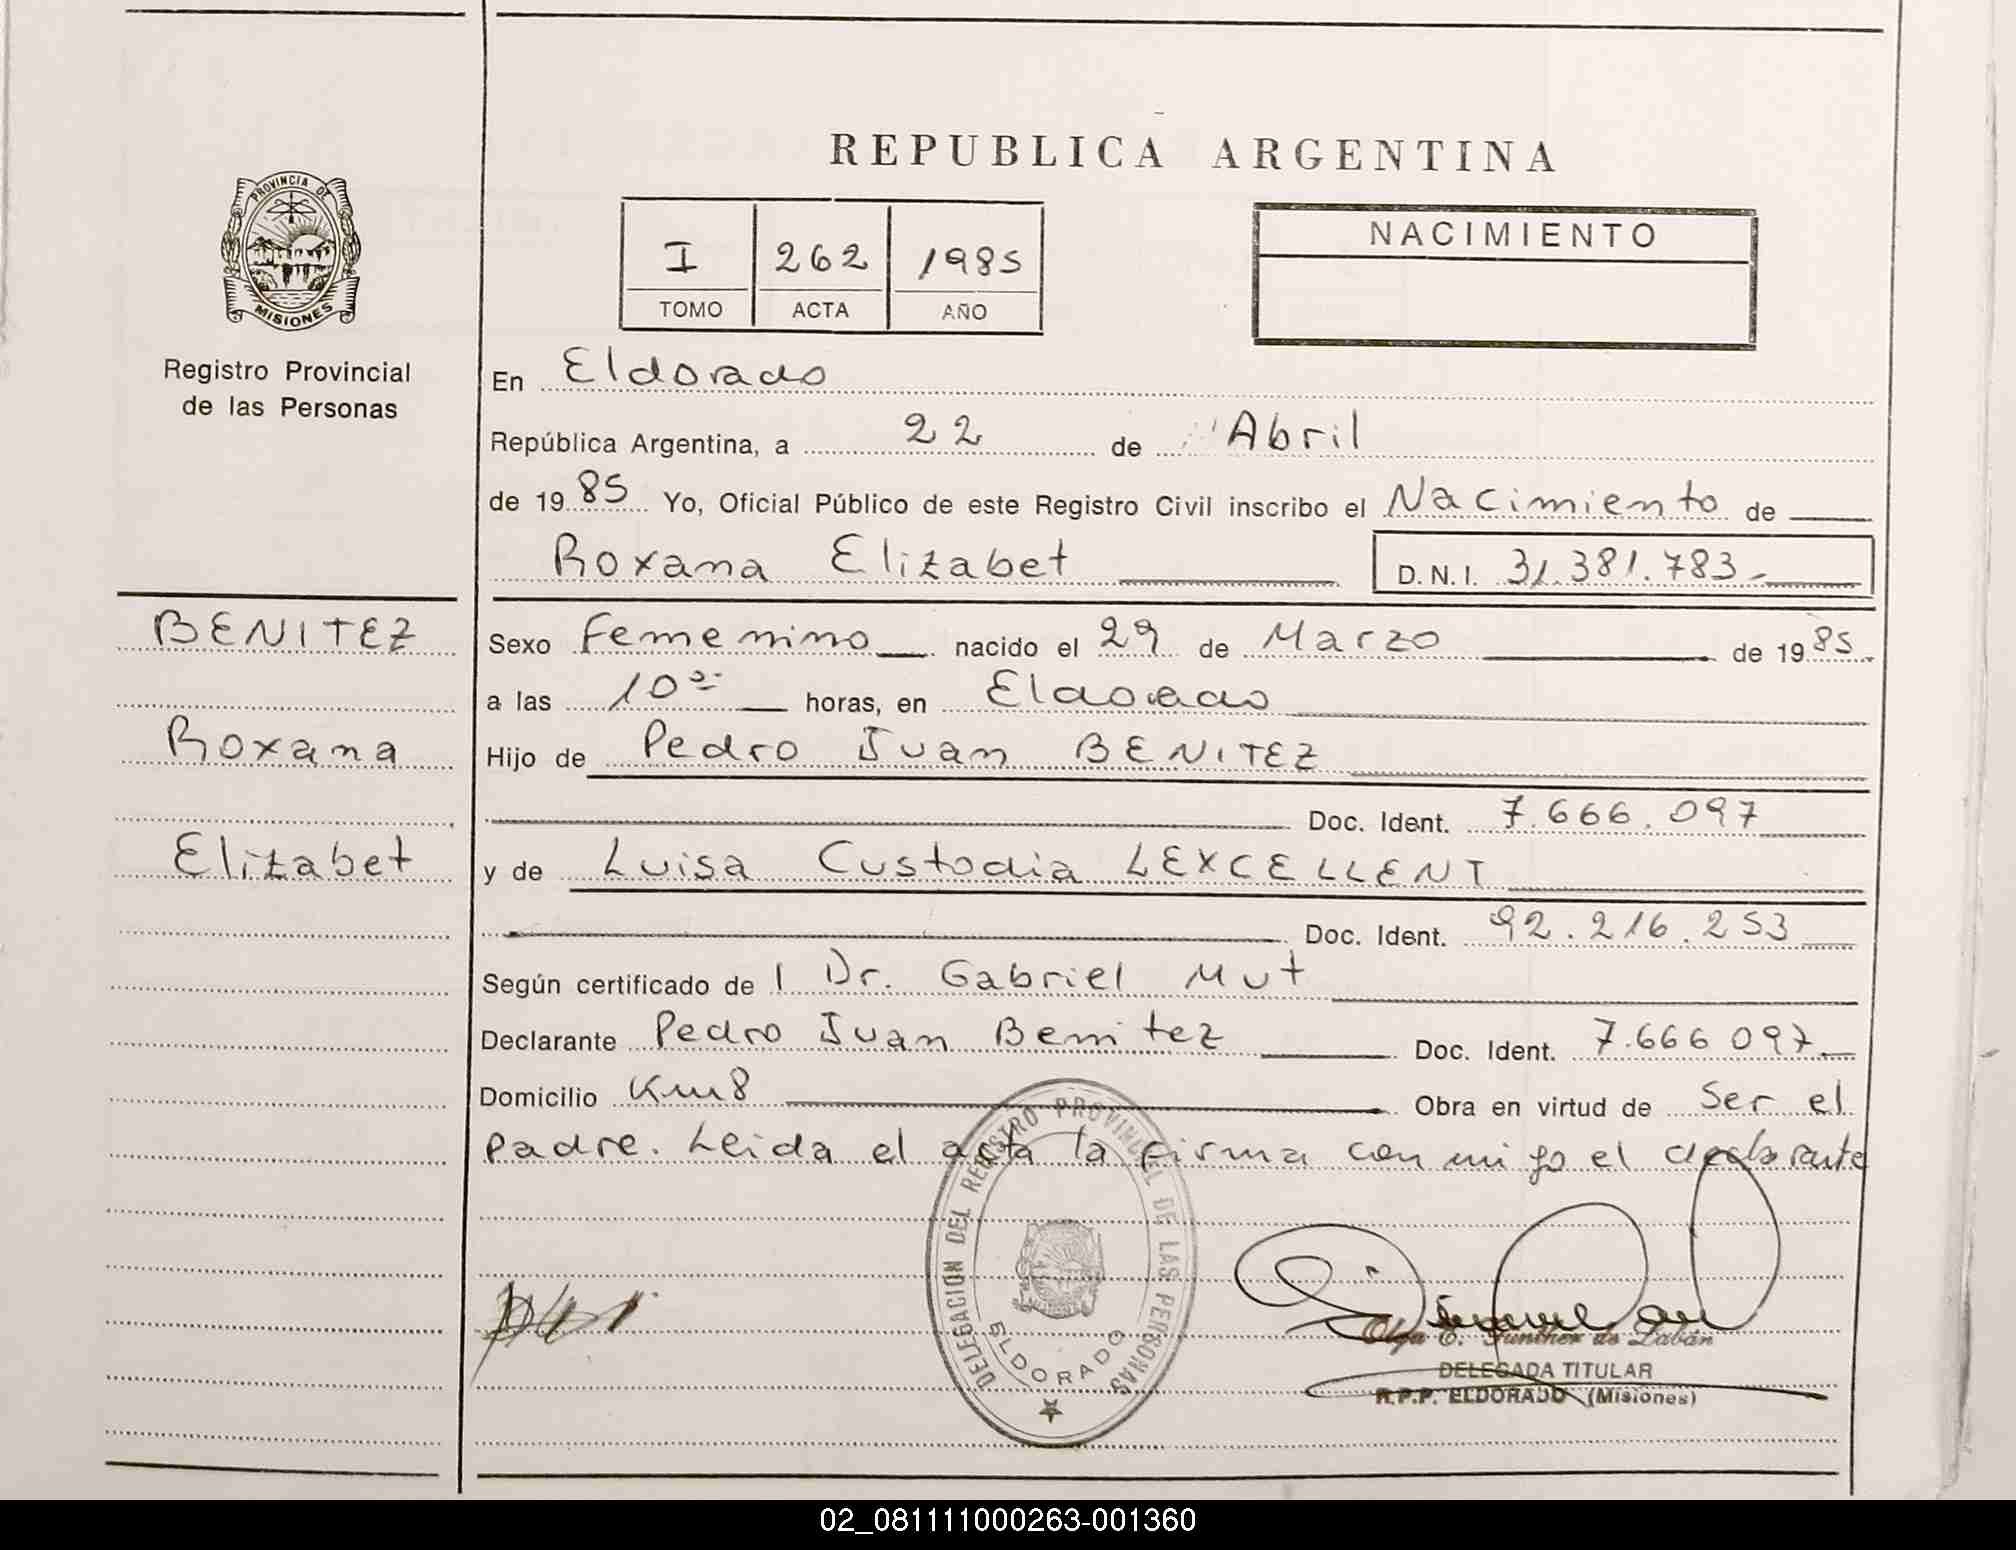 REPUBLICA ARGENTINA
PROVINCIA DE
MISIONES
Registro Provincial
de las Personas
I 262 1985
TOMO ACTA AÑO
NACIMIENTO
En Eldorado
República Argentina, a 22 de Abril
de 1985 Yo, Oficial Público de este Registro Civil inscribo el Nacimiento de
Roxana Elizabet D.N.I. 31.381.783.-
BENITEZ
Roxana
Elizabet
Sexo Femenino nacido el 29 de Marzo de 1985
a las 10 horas, en Eldorado
Hijo de Pedro Juan BENITEZ
Doc. Ident. 7.666.097
y de Luisa Custodia LEXCELLENT
Doc. Ident. 92.216.253
Según certificado de l Dr. Gabriel Mut
Declarante Pedro Juan Benitez Doc. Ident. 7.666 097
Domicilio Km8 Obra en virtud de Ser el
padre. Leida el acta la firma con migo el declarante
DELEGACION DEL REGISTRO PROVINCIAL DE LAS PERSONAS
ELDORADO
Olga E. Gunther de Labán
DELEGADA TITULAR
R.P.P. ELDORADO (Misiones)
02_081111000263-001360